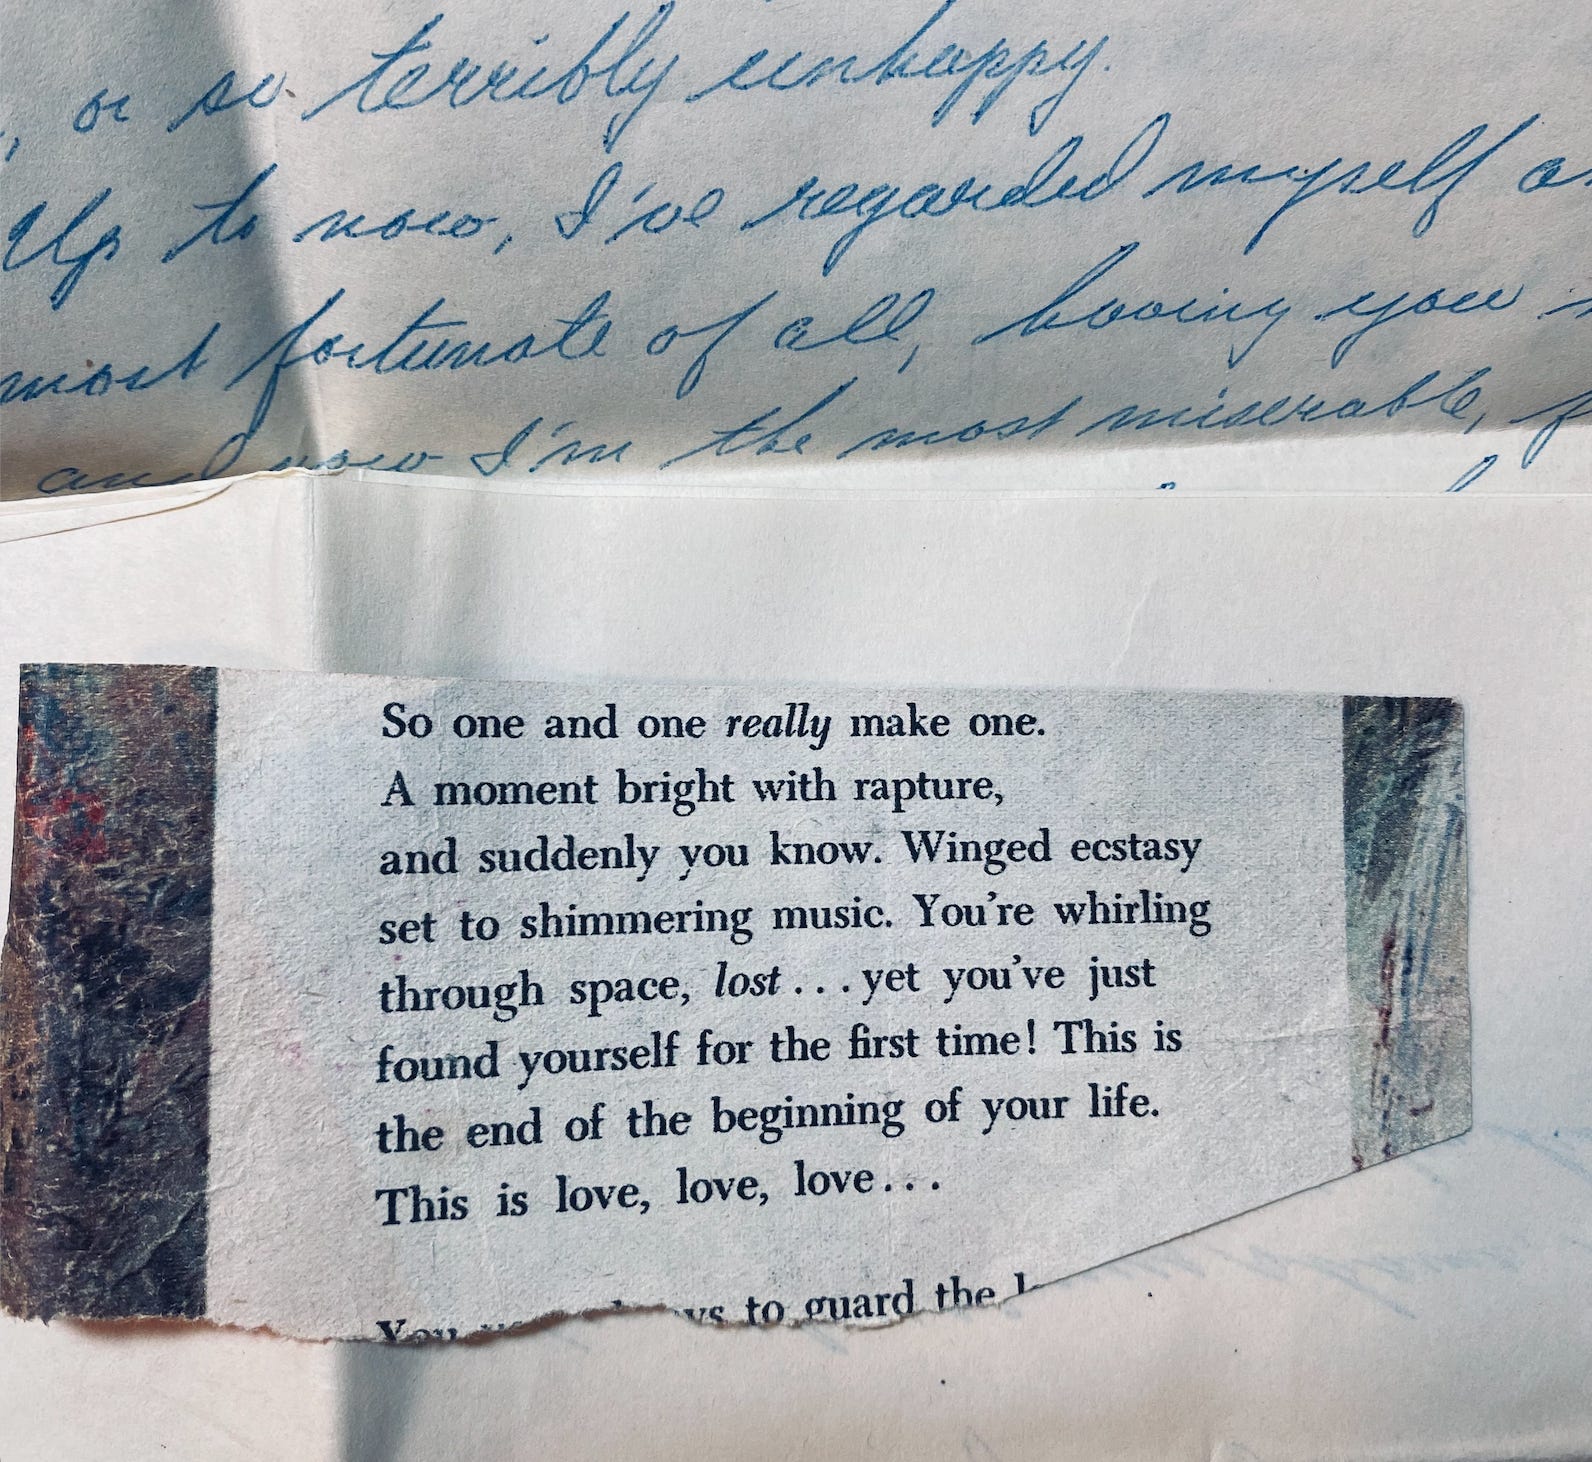 , or so terribly unhappy.
Up to now, I've regarded myself
most fortunate of all, having you
and now I'm the most miserable,
So one and one really make one.
A moment bright with rapture,
and suddenly you know. Winged ecstasy
set to shimmering music. You're whirling
through space, lost . . . yet you've just
found yourself for the first time! This is
the end of the beginning of your life.
This is love, love, love . . .
You to guard the